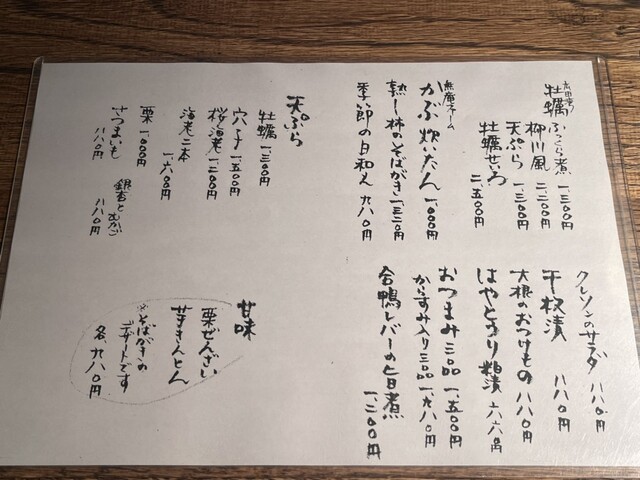 牡蠣ふっくら煮 一、三〇〇円
柳川風 二、二〇〇円
天ぷら 一、三〇〇円
牡蠣せいろ 二、五〇〇円
無庵ネーム
かぶ炊いたん 一、〇〇〇円
熟し柿のそばがき 一、三二〇円
季節の白和え 九八〇円
天ぷら
牡蠣 一、三〇〇
穴子 一、五〇〇円
桜海老 一、二〇〇
海老二本 一、六〇〇円
栗 一、〇〇〇円
さつまいも 八八〇円
銀杏とむかご 八八〇円
クレソンのサラダ 八八〇円
干枚漬 八八〇円
大根のおつけもの 八八〇円
はやとうり粕漬 六六〇円
おつまみ三品 一、五〇〇円
からすみ入り三品 一、九八〇円
合鴨レバーの旨煮 一、二〇〇円
甘味
栗ぜんざい
芋きんとん
※そばがきの
デザートです
各、九八〇円